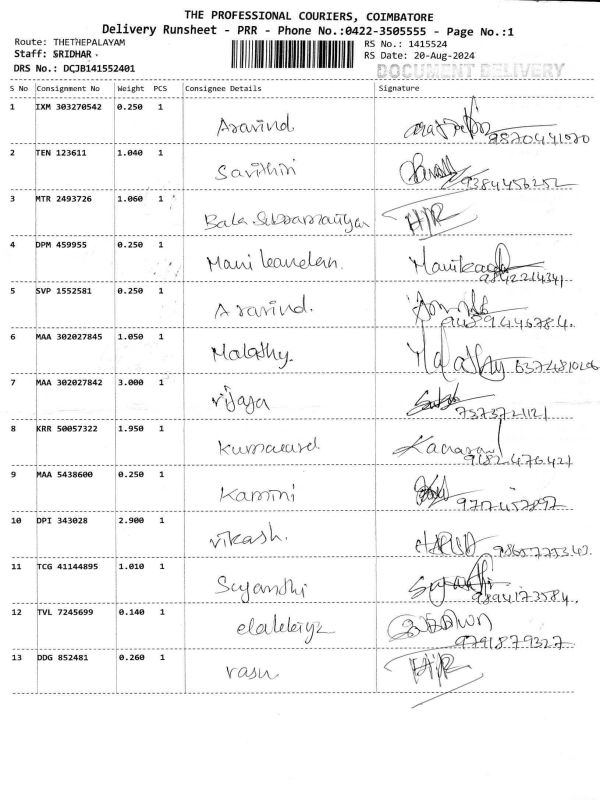 THE PROFESSIONAL COURIERS, COIMBATORE
Delivery Runsheet - PRR - Phone No.:0422-3505555 - Page No.:1
Route: THETHEPALAYAM RS No.: 1415524
Staff: SRIDHAR RS Date: 20-Aug-2024
DRS No.: DCJB141552401 DOCUMENT DELIVERY
S No Consignment No Weight PCS Consignee Details Signature
1 IXM 303270542 0.250 1 Aravind
9870441070
2 TEN 123611 1.040 1 Savithiri
9384456252
3 MTR 2493726 1.060 1 Bala
4 DPM 459955 0.250 1 Mani
9842214341
5 SVP 1552581 0.250 1 Aravind.
6 MAA 302027845 1.050 1 Malathy. Malathy 6374810206
7 MAA 302027842 3.000 1 vijaya
8 KRR 50057322 1.950 1
9182476421
9 MAA 5438600 0.250 1 Kamini
10 DPI 343028 2.900 1 vikash.
11 TCG 41144895 1.010 1
9894173584.
12 TVL 7245699 0.140 1
9791879327
13 DDG 852481 0.260 1 vasu